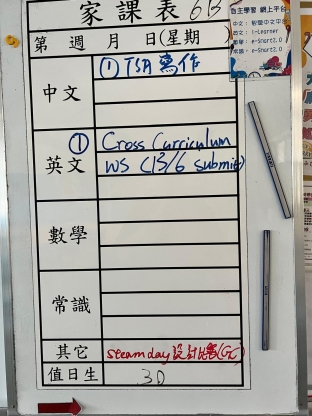 家課表 6B
第 週 月 日(星期
自主學習 網上平台
中文：智愛中文平台
英文：i-Learner
數學：e-Smart2.0
常識：e-Smart2.0
中文
① TSA 寫作
英文
① Cross Curriculum
WS (13/6 submit)
數學
常識
其它
steam day 設計比賽(GC)
值日生
30